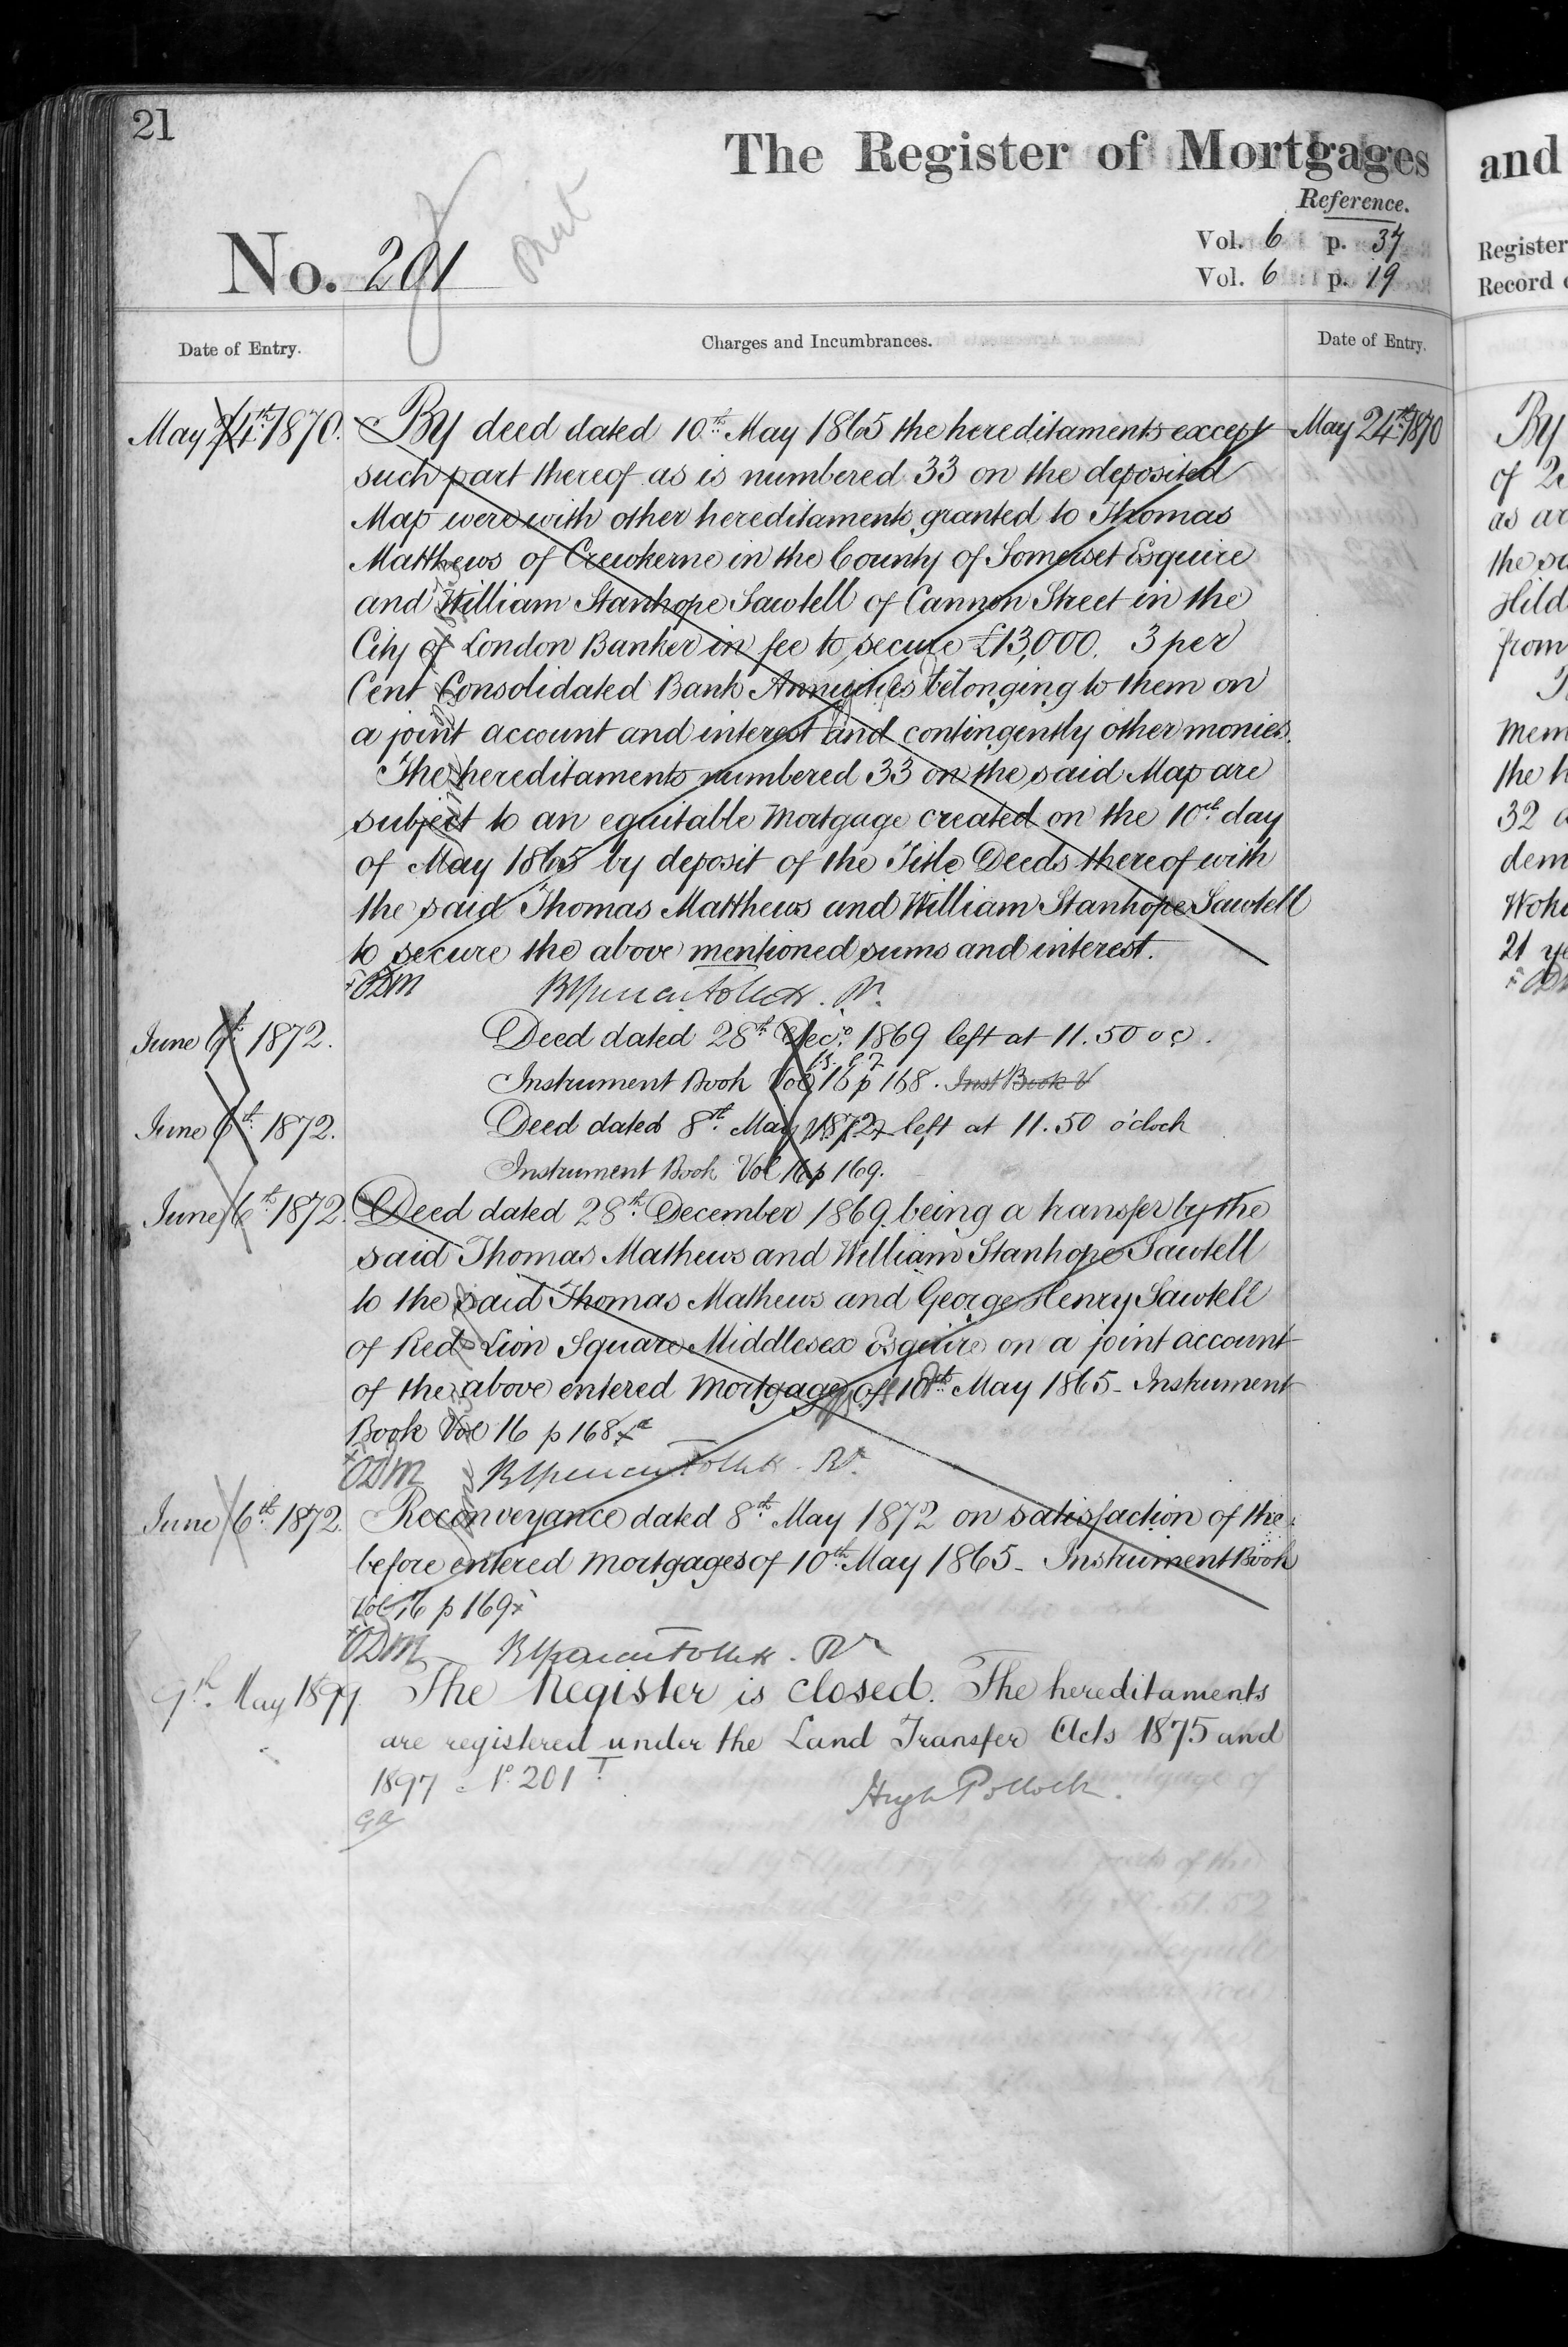 21
The Register of Mortgages
Reference.
No. 201
Vol. 6 p. 37
Vol. 6 p. 19
Date of Entry.
Charges and Incumbrances.
Date of Entry.
May 24th 1870.
By deed dated 10th May 1865 the hereditaments except
such part thereof as is numbered 33 on the deposited
Map were with other hereditaments granted to Thomas
Matthews of Crewkerne in the County of Somerset Esquire
and William Stanhope Sawtell of Cannon Street in the
City of London Banker in fee to secure £13,000. 3 per
Cent Consolidated Bank Annuities belonging to them on
a joint account and interest and contingently other monies.
The hereditaments numbered 33 on the said Map are
subject to an equitable Mortgage created on the 10th day
of May 1865 by deposit of the Title Deeds thereof with
the said Thomas Matthews and William Stanhope Sawtell
to secure the above mentioned sums and interest.
ODM
June 6th 1872.
Deed dated 28th Dec.r 1869 left at 11.50 o c.
Instrument Book Vol 16 p 168. Inst Book V
June 6th 1872.
Deed dated 8th May 1872 left at 11.50 o'clock
Instrument Book Vol 16 p 169.
June 6th 1872.
Deed dated 28th December 1869 being a transfer by the
said Thomas Mathews and William Stanhope Sawtell
to the said Thomas Mathews and George Henry Sawtell
of Red Lion Square Middlesex Esquire on a joint account
of the above entered Mortgage of 10th May 1865 - Instrument
Book Vol 16 p 168
ODM
June 6th 1872.
Reconveyance dated 8th May 1872 on satisfaction of the
before entered Mortgages of 10th May 1865 - Instrument Book
Vol 16 p 169
ODM
9th May 1899.
The Register is closed. The hereditaments
are registered under the Land Transfer Acts 1875 and
1897 No. 201
Hugh Pollock.
May 24th 1870
and
Register
Record
By
of
as
the
Hild
from
mem
the h
32
dem
Woki
21 ye